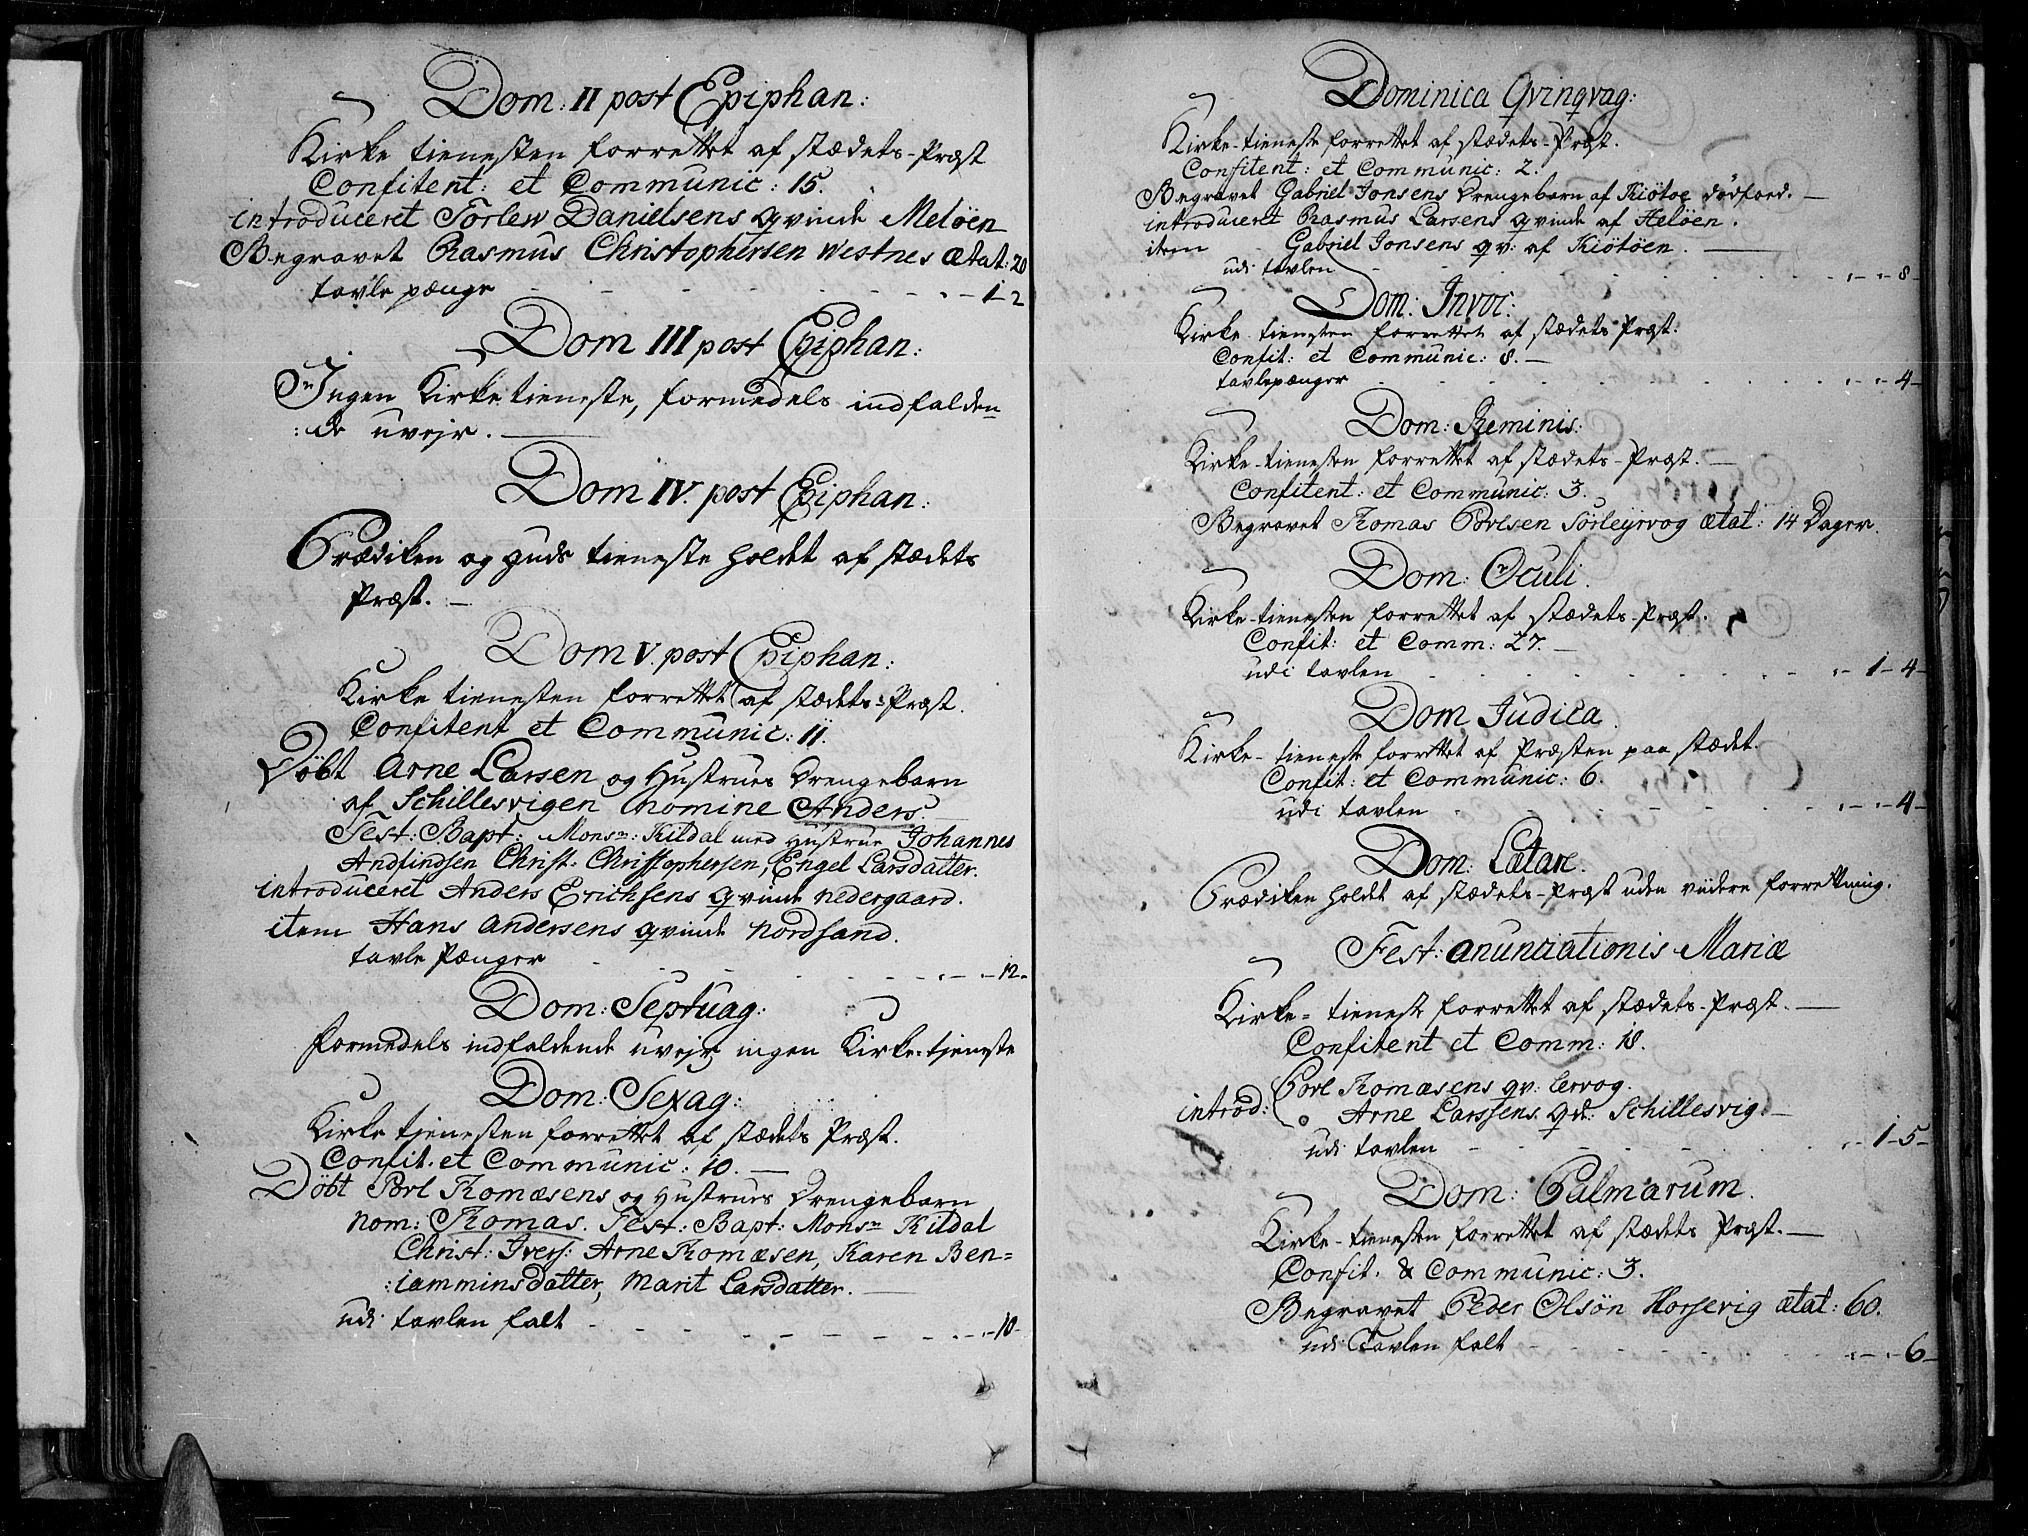 Dom: II post Epiphan:
Kirke tienesten forrettet af stædets-Præst
Confitent: et Communic: 15.
introduceret Torlew Danielsens qvinde Meløen
Begravet Rasmus Christophersen Westnes Ætat: 20
tavle pænge - - - - 1-2
Dom III post Epiphan:
Ingen Kirketieneste, formedels indfalden=
:de uvejr.
Dom IV. post Epiphan:
Prædiken og guds tieneste holdet af stædets
Præst.
Dom V. post Epiphan:
Kirke tienesten forrettet af stædets=Præst.
Confitent et Communic: 11.
Døbt Arne Larsen og Hustrues Drengebarn
af Schillesvigen nomine Anders.
Test: Bapt: Monsr: Kildal med Hustrue Johannes
Andfindsen Christ: Christophersen, Engel Larsdatter.
introduceret Anders Erichsens qvinde nedergaard.
item Hans Andersens qvinde Nordsand.
tavle Pænger - - - - 12.
Dom: Septuag:
formedels indfaldende uvejr ingen Kirke=tjeneste
Dom: Sexag:
Kirke tjenesten forrettet af stædets Præst.
Confit. et Communic: 10.
Døbt Povl Thomæsens og Hustrues Drengebarn
nom: Thomas. Test: Bapt: Monsr Kildal
Christ: Ivers: Arne Thomæsen, Karen Ben=
:iamminsdatter, Marit Larsdatter.
udi tavlen falt - - - - 10-
Dominica Qvinqvag:
Kirke-tieneste forrettet af stædets-Præst.
Confitent: et Communic: 2.
Begravet Gabriel Jonsens Drengebarn af Kiøtøe dødfoed.
introduceret Rasmus Larsens qvinde af Heløen.
item Gabriel Jonsens qv: af Kiøtøen.
udi tavlen - - - - 8-
Dom: Invoc:
Kirke-tienesten forrettet af stædets Præst.
Confit: et Communic: 8.
tavlepænger - - - - 4-
Dom: Reminis:
Kirke-tienesten forrettet af stædets-Præst.
Confitent: et Communic: 3.
Begravet Thomas Povlsen Sørleyrvog ætat: 14 Dager.
Dom: Oculi.
Kirke-tienesten forrettet af stædets-Præst.
Confit: et Comm: 27.
udi tavlen - - - - 1-4-
Dom Judica.
Kirke-tieneste forrettet af Præsten paa stædet.
Confit: et Communic: 6.
udi tavlen - - - - 4-
Dom: Lætare.
Prædiken holdet af stædets-Præst uden viidere forrettning.
Fest: anunciationis Mariæ
Kirke=tieneste forrettet af stædets-Præst.
Confitent et Comm: 18.
Povl Thomæsens qv: Lervog.
introd: Arne Larssens qv: Schillesvig.
udi tavlen - - - - 1-5-
Dom: Palmarum.
Kirke-tienesten forrettet af stædets Præst.
Confit. & Communic: 3.
Begravet Peder Olsøn Horsevig ætat: 60.
udi Tavlen falt - - - - 6-